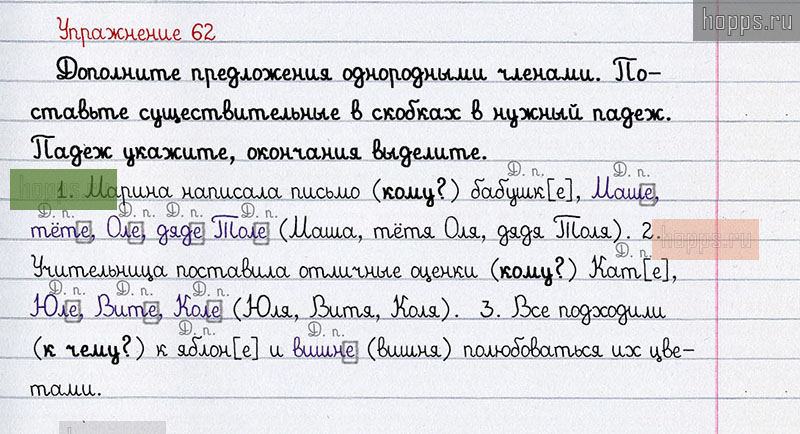 hopps.ru
Упражнение 62
Дополните предложения однородными членами. По-
ставьте существительные в скобках в нужный падеж.
Падеж укажите, окончания выделите.
Д. п. Д. п.
hopps
1. Марина написала письмо (кому?) бабушк[е], Маше,
Д. п. Д. п. Д. п. Д. п.
тёте, Оле, дяде Толе (Маша, тётя Оля, дядя Толя). 2.
hopps.ru
Д. п.
Учительница поставила отличные оценки (кому?) Кат[е],
Д. п. Д. п. Д. п.
Юле, Вите, Коле (Юля, Витя, Коля). 3. Все подходили
Д. п. Д. п.
(к чему?) к яблон[е] и вишне (вишня) полюбоваться их цве-
тами.